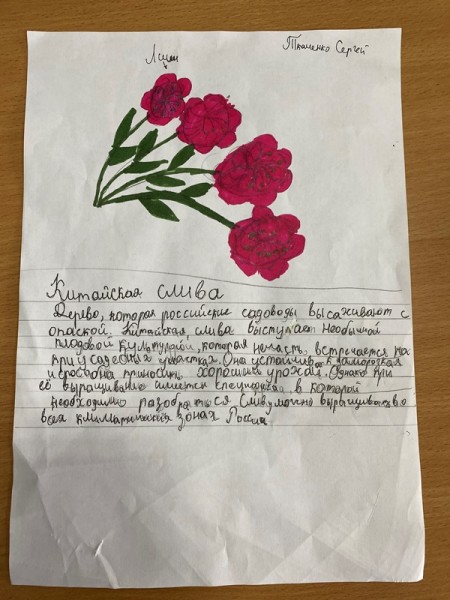 Ткаченко Сергей
Китайская слива
Дерево, которая российские садоводы высаживают с
опаской. Китайская слива выступает необычной
плодовой культурой, которая нечасто встречается на
приусадебных участках. Она устойчива к заморозкам
и способна приносить хорошие урожаи. Однако при
её выращивании имеется специфика в которой
необходимо разобраться Сливу можно выращивать во
всех климатических зонах России.